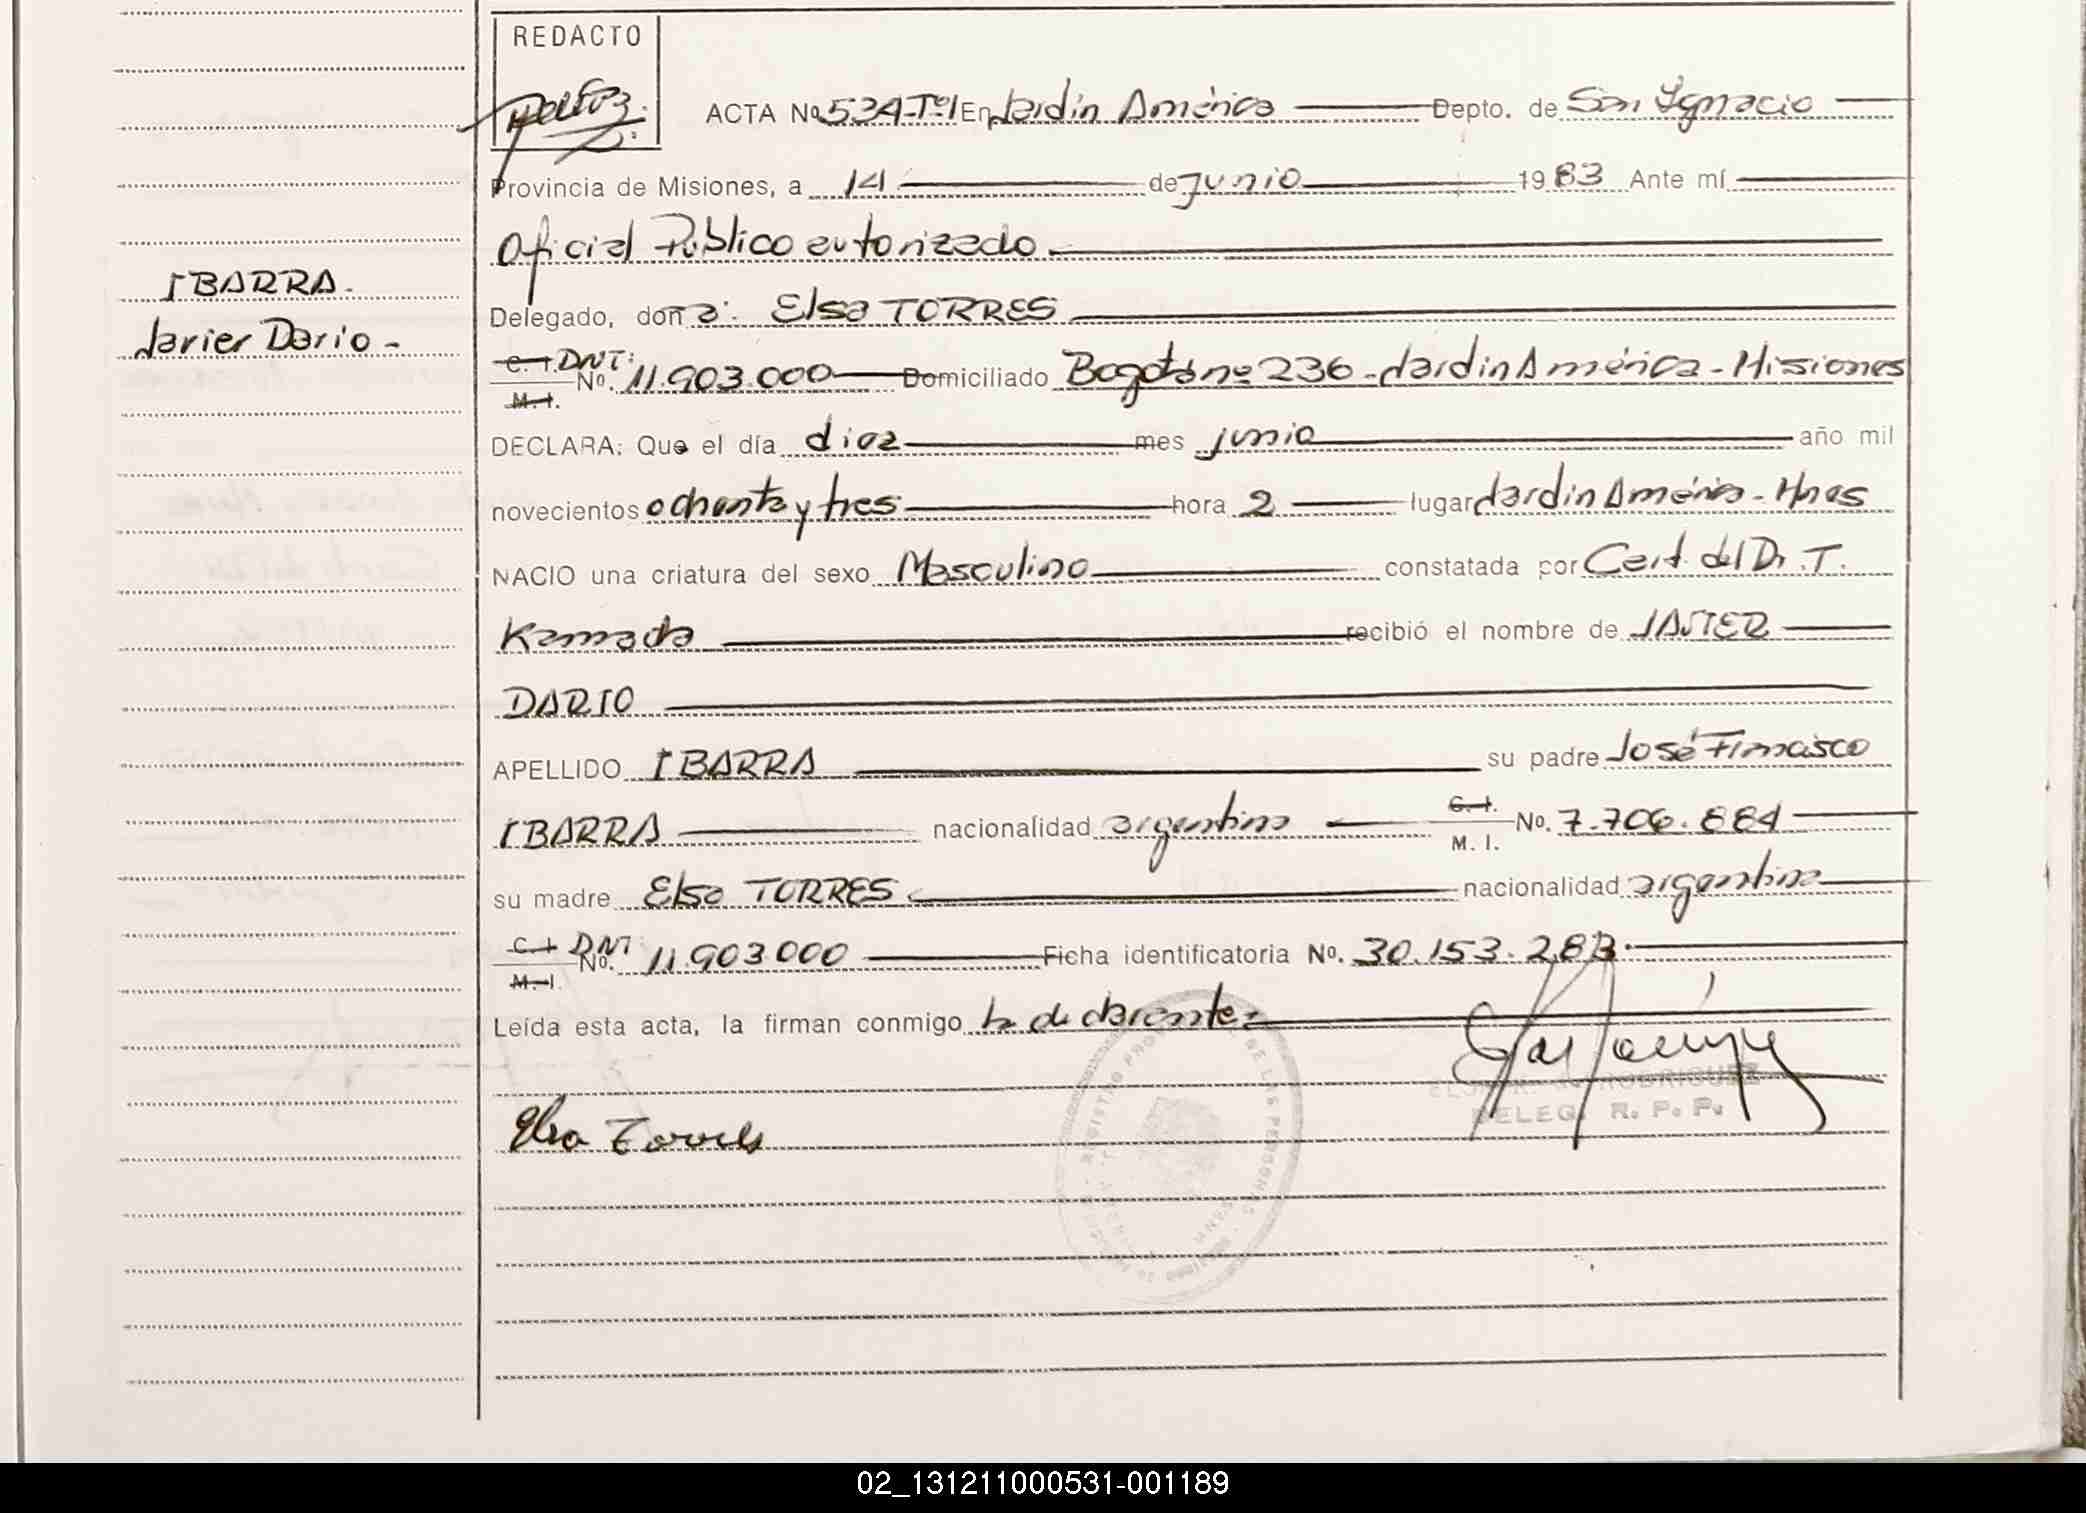 REDACTO
ACTA No 524-Tº1 En Jardín América Depto. de San Ignacio
Provincia de Misiones, a 14 de junio 1983 Ante mí
Oficial Público autorizado
IBARRA.
Delegado, doña: Elsa TORRES
Javier Dario -
C. I. DNI:
No. 11.903.000 Domiciliado Bogotá nº 236 - Jardín América - Misiones
M. I.
DECLARA: Que el día diez mes junio año mil
novecientos ochenta y tres hora 2 lugar Jardín América - Mnes
NACIO una criatura del sexo Masculino constatada por Cert. del Dr. T.
Kamada recibió el nombre de JAVIER
DARIO
APELLIDO IBARRA su padre José
IBARRA nacionalidad argentina C. I. No. 7.706.884
M. I.
su madre Elsa TORRES nacionalidad argentina
C. I. DNI:
No. 11.903.000 Ficha identificatoria No. 30.153.283
M. I.
Leída esta acta, la firman conmigo la declarante
RODRIGUEZ
Elsa Torres
DELEG. R. P. P.
REGISTRO DE LAS PERSONAS
02_131211000531-001189